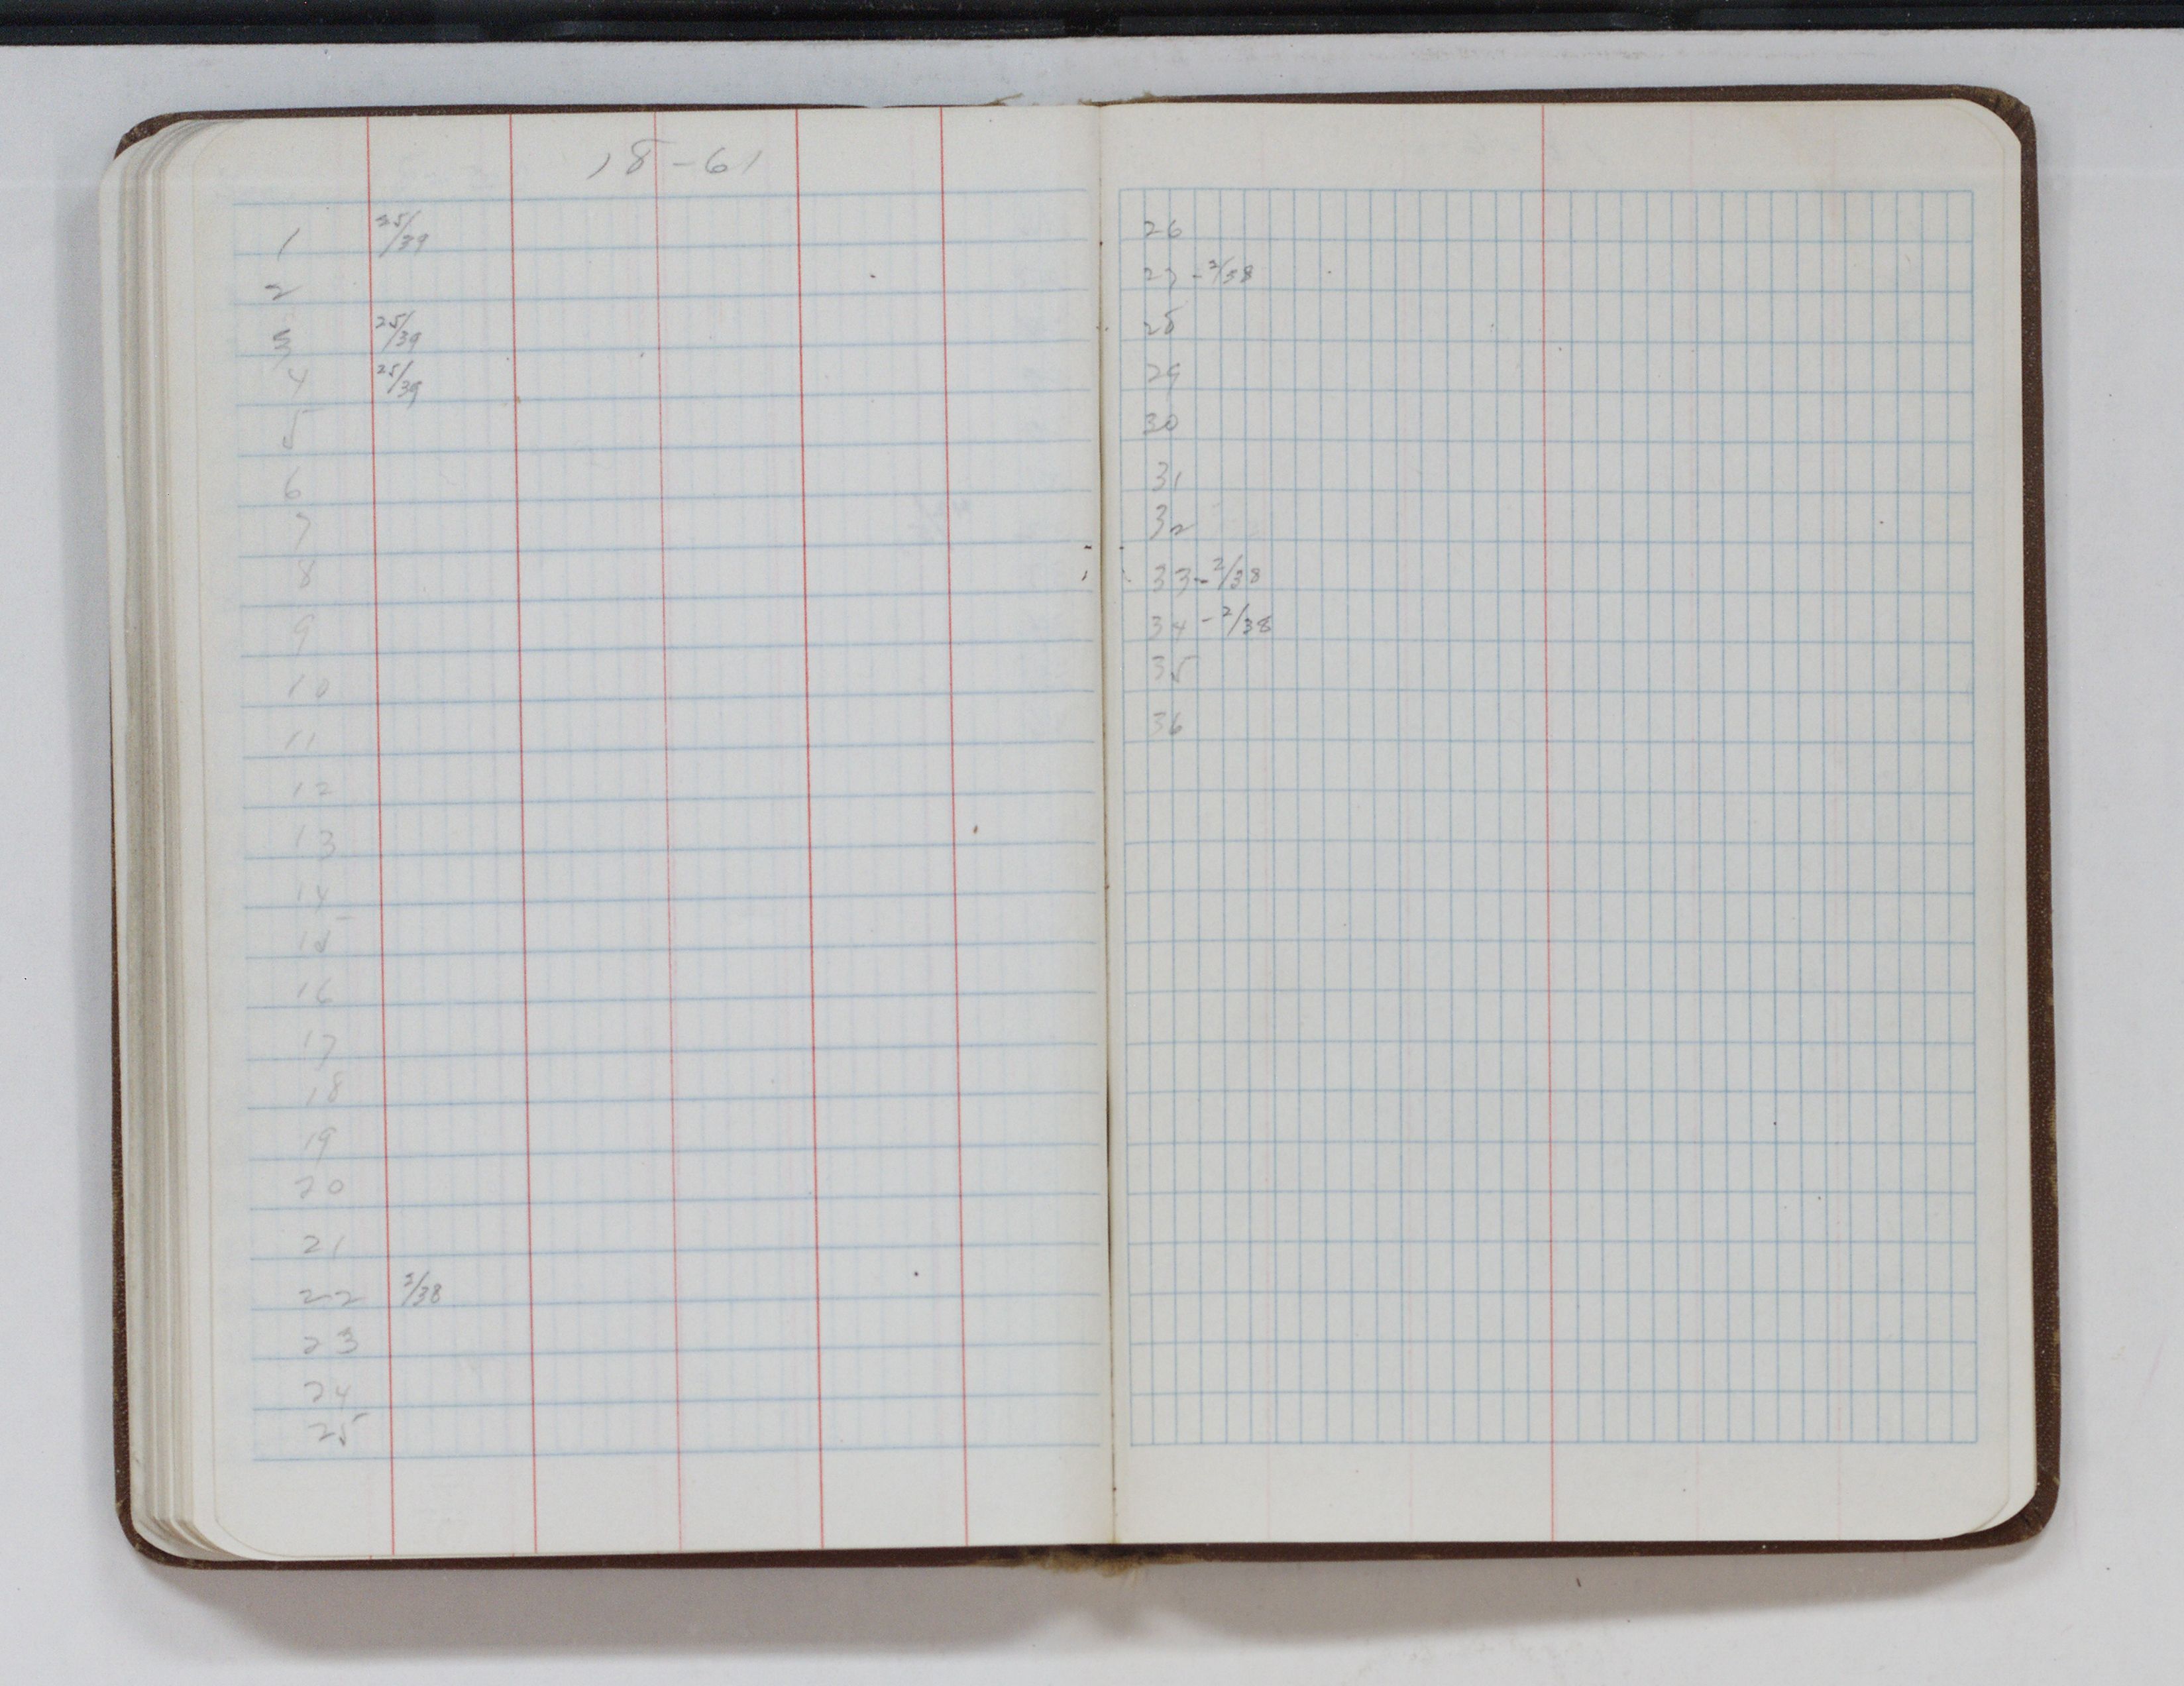 18-61
1 25/39
2
3 25/39
4 25/39
5
6
7
8
9
10
11
12
13
14
15
16
17
18
19
20
21
22 2/38
23
24
25
26
27 - 2/38
28
29
30
31
32
33 - 2/38
34 - 2/38
35
36